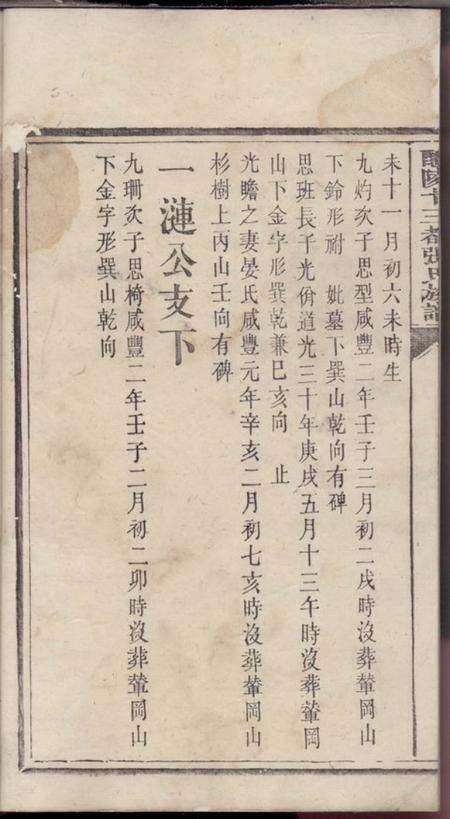 醴陵廿三都張氏族譜
未十一月初六未時生
九灼次子思型咸豐二年壬子三月初二戌時沒葬輋岡山
下鈴形祔妣墓下巽山乾向有碑
思班長子光佾道光三十年庚戌五月十三午時沒葬輋岡
山下金字形巽乾兼巳亥向止
光瞻之妻晏氏咸豐元年辛亥二月初七亥時沒葬輋岡山
杉樹上丙山壬向有碑
一漣公支下
九珊次子思椅咸豐二年壬子二月初二卯時沒葬輋岡山
下金字形巽山乾向